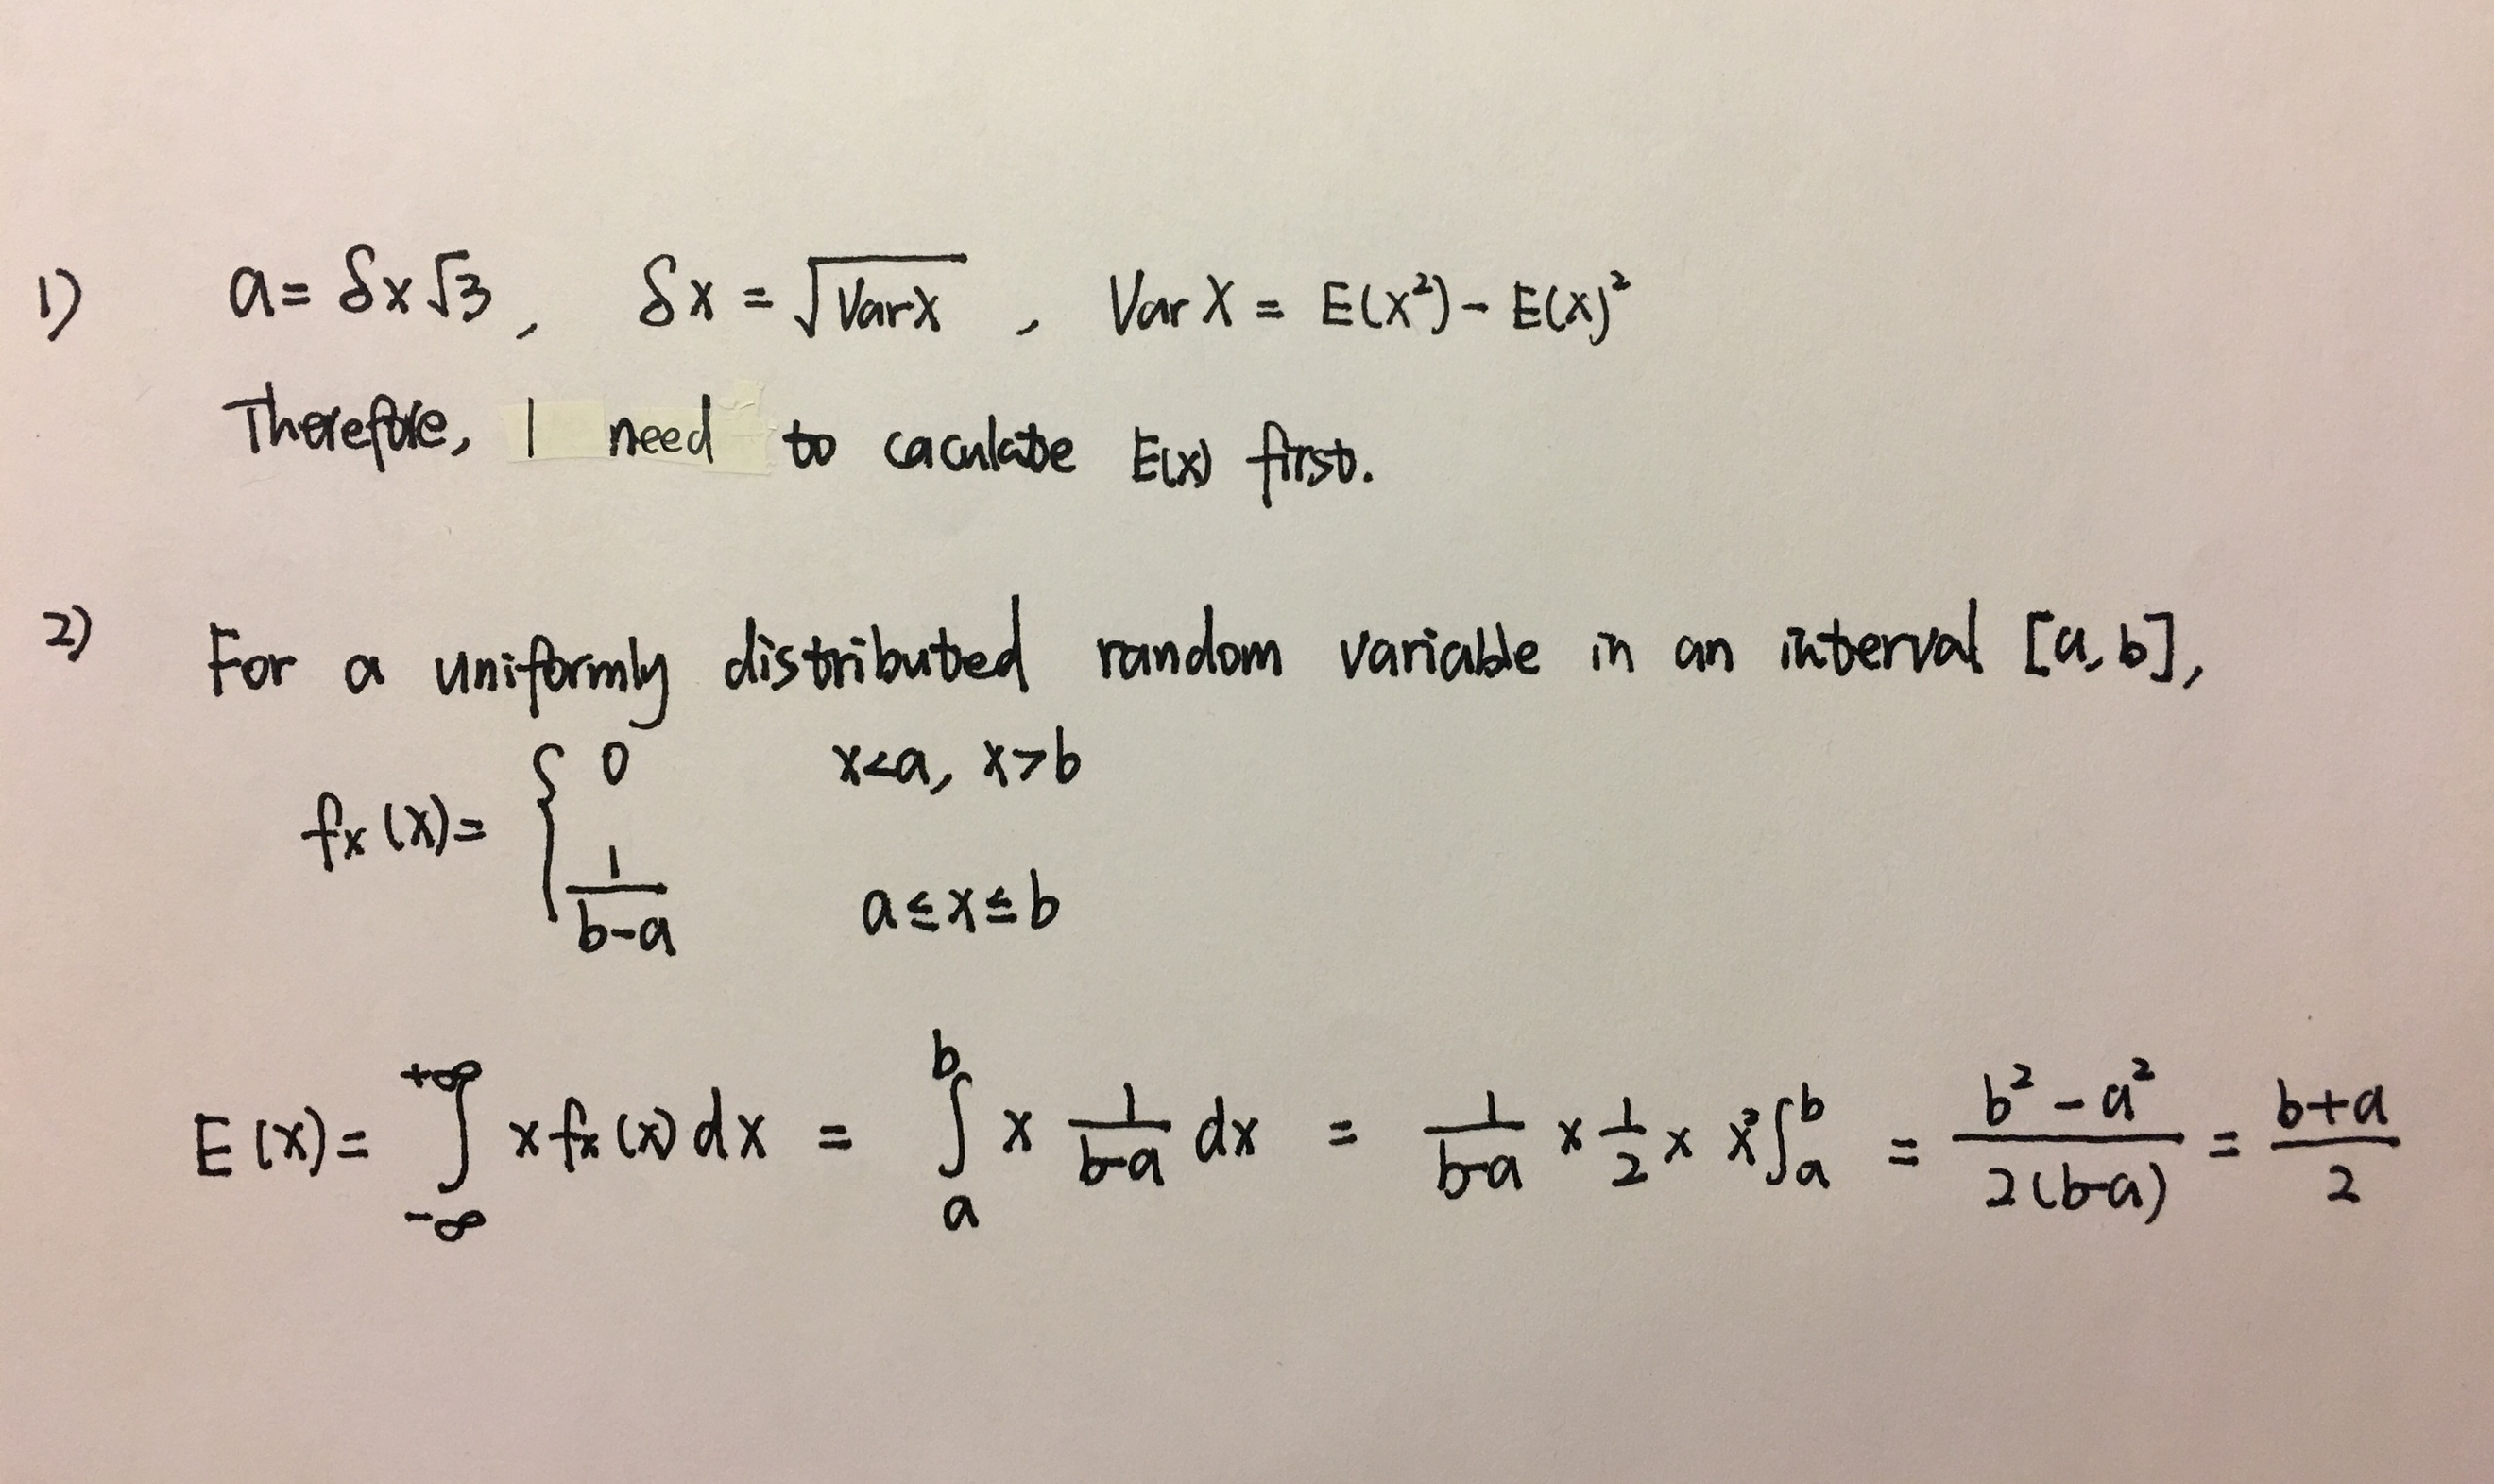 1) a = δx√3, δx = √VarX, Var X = E(X²) - E(X)²
Therefore, I need to caculate E(X) first.
2) For a uniformly distributed random variable in an interval [a, b],
fx(x) = { 0 x<a, x>b
1/(b-a) a≤x≤b
E(X) = ∫_{-∞}^{+∞} x fx(x) dx = ∫_a^b x 1/(b-a) dx = 1/(b-a) × 1/2 × x² ∫_a^b = (b²-a²)/(2(b-a)) = (b+a)/2